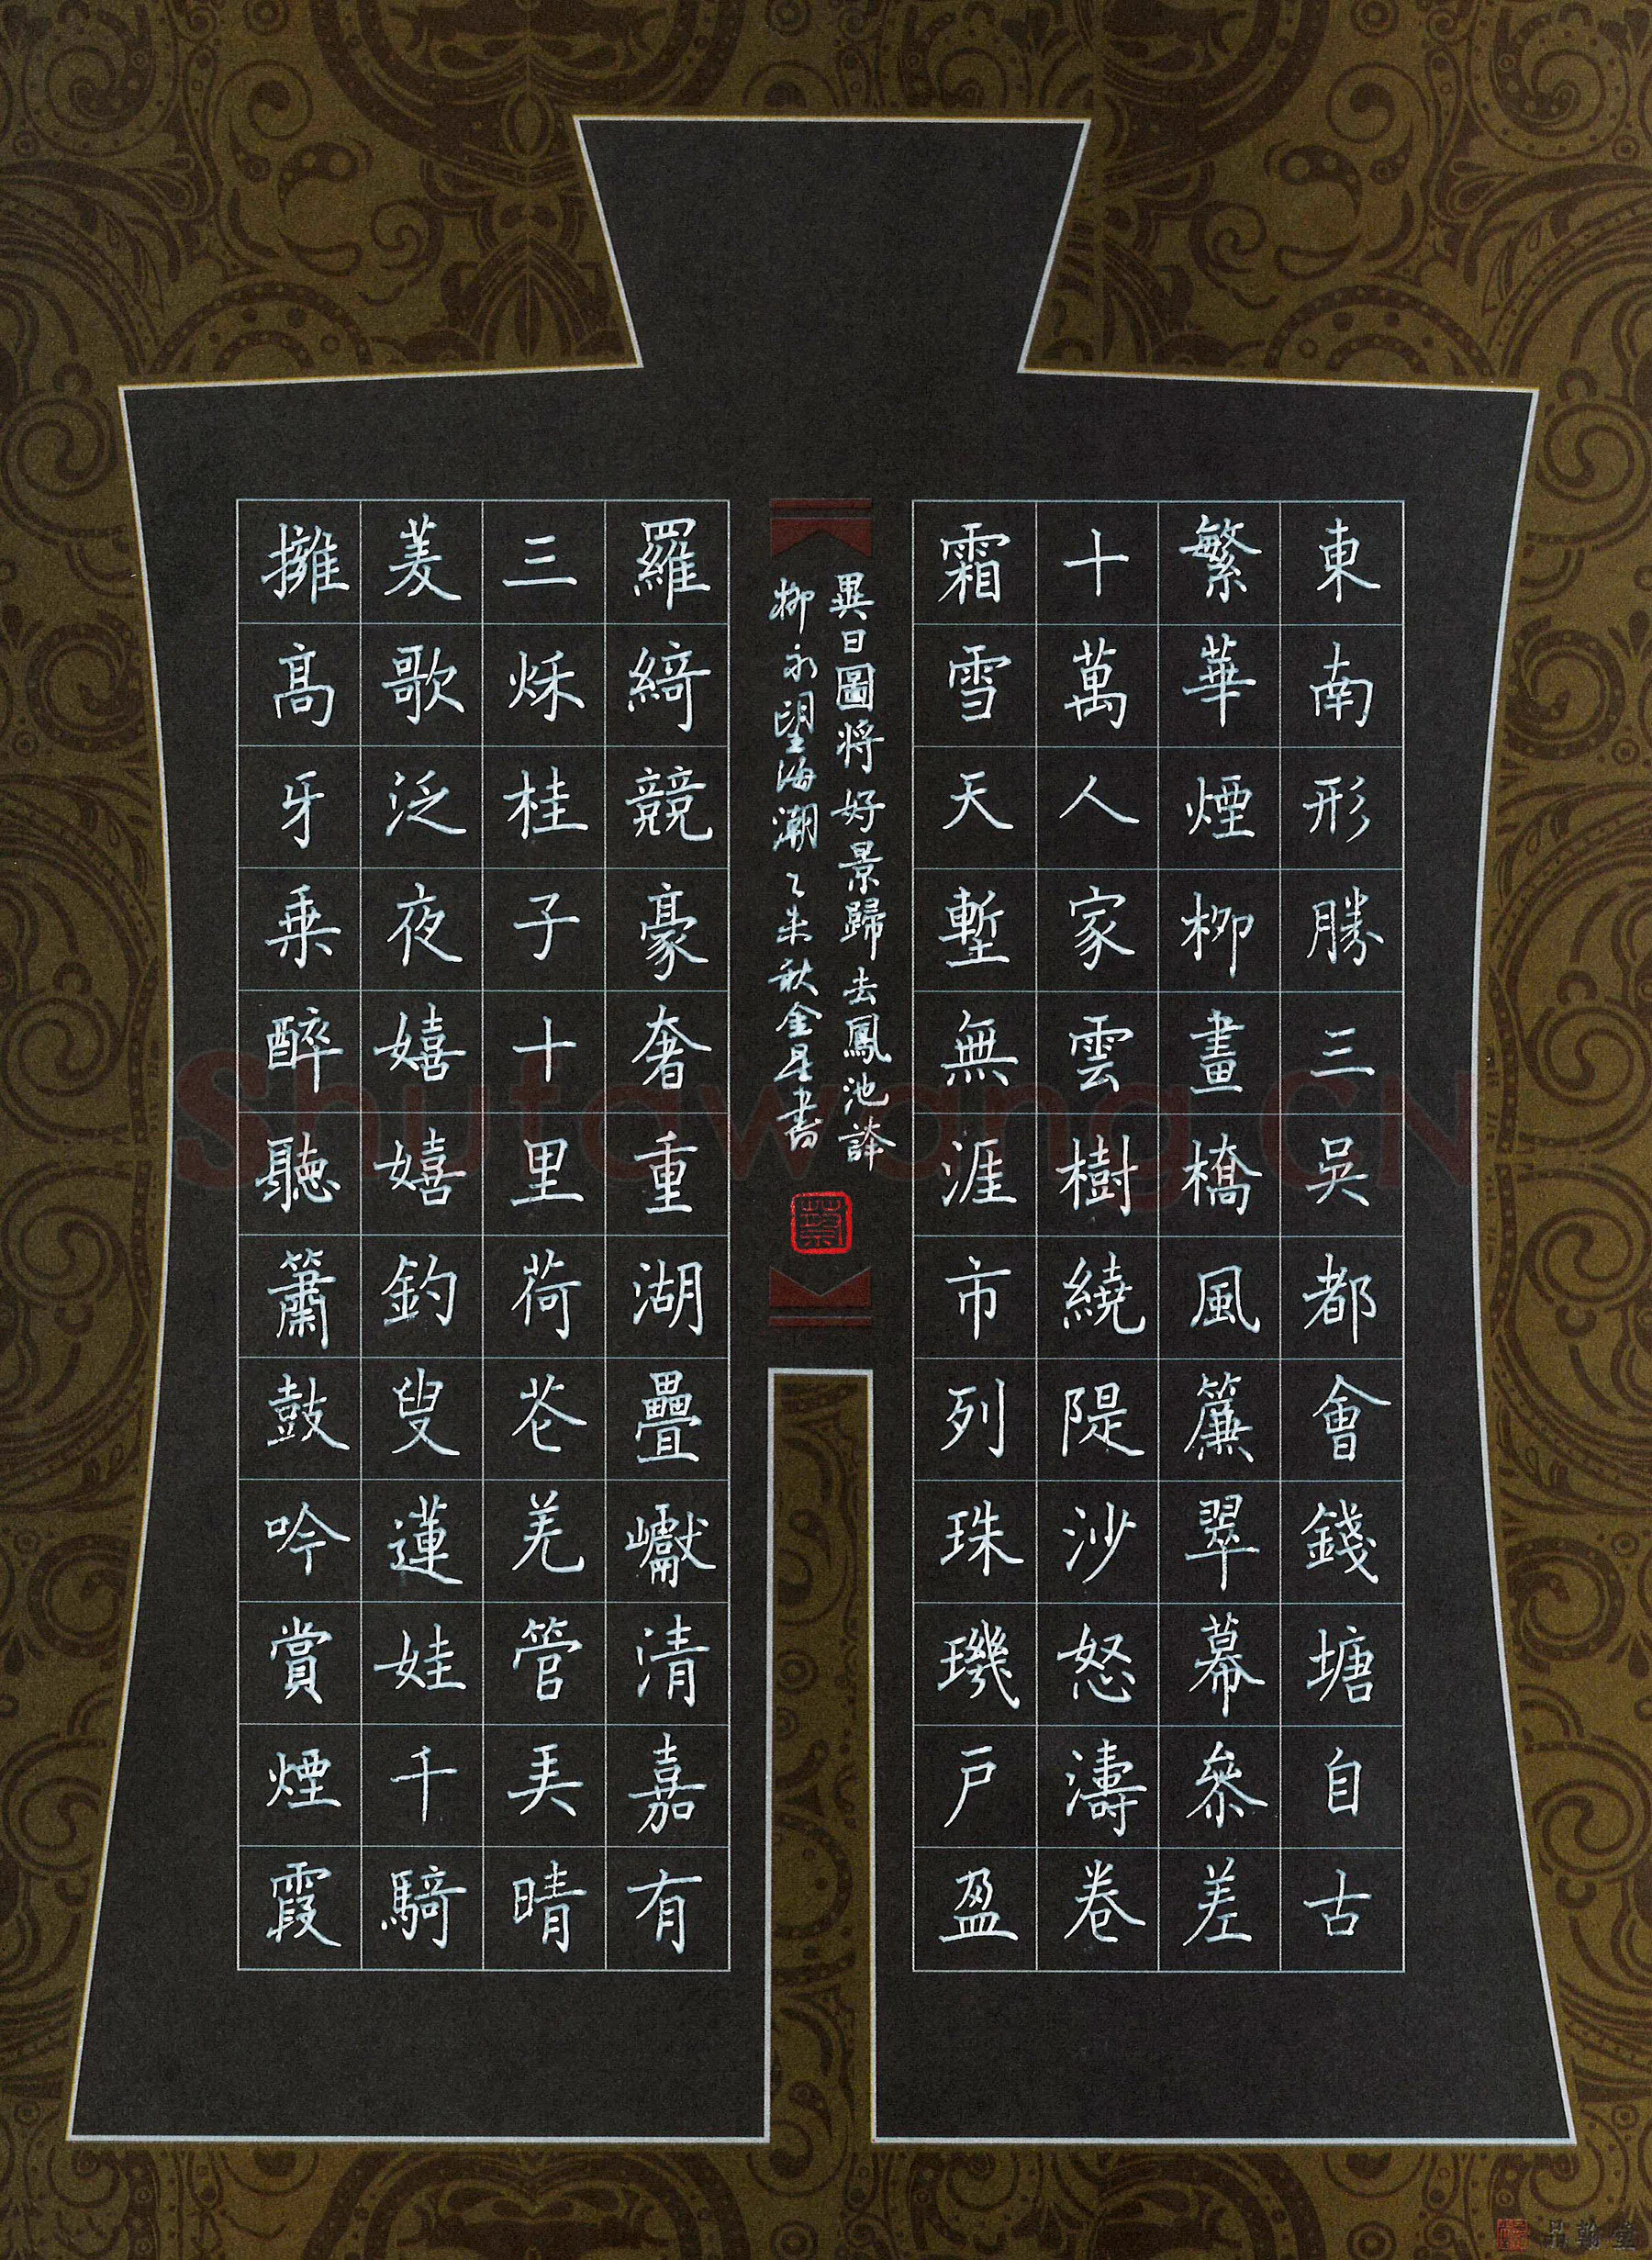 東南形勝三吳都會錢塘自古
繁華煙柳畫橋風簾翠幕參差
十萬人家雲樹繞隄沙怒濤卷
霜雪天塹無涯市列珠璣戶盈
羅綺競豪奢重湖疊巘清嘉有
三秌桂子十里荷花羌管弄晴
菱歌泛夜嬉嬉釣叟蓮娃千騎
擁高牙乘醉聽簫鼓吟賞煙霞
異日圖將好景歸去鳳池誇
柳永望海潮乙未秋金星書
Shufawang.CN
品翰堂